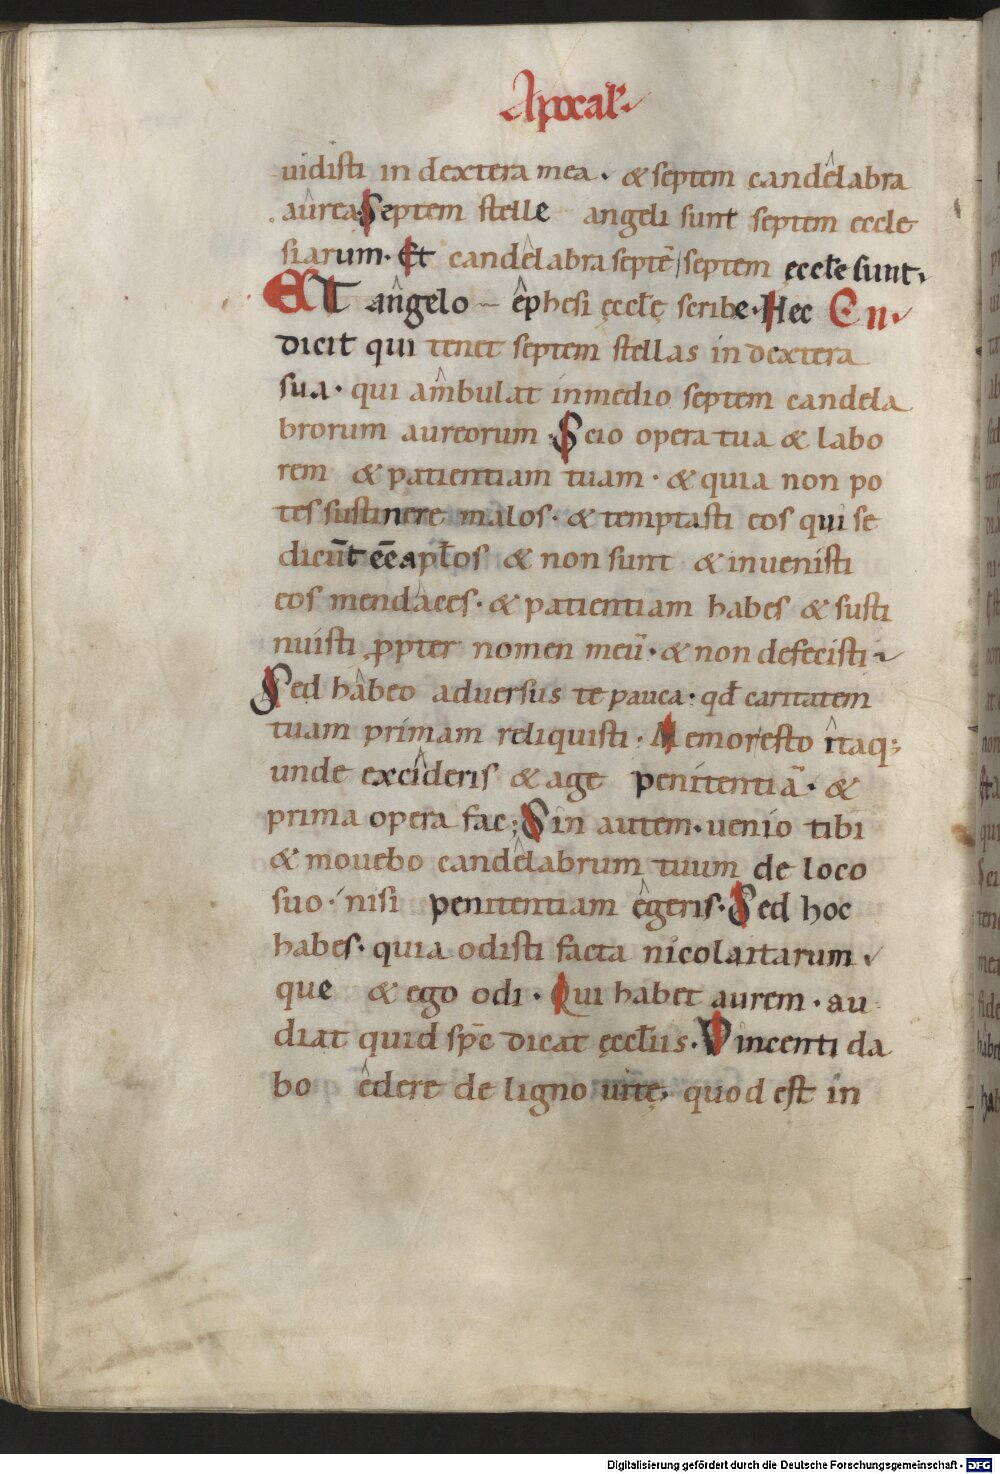 Apocal̅.
uidisti in dextera mea. & septem candelabra
aurea. Septem stelle angeli sunt septem eccle
siarum. Et candelabra septē septem ęccl̅e sunt.
ET angelo ephesi ęccl̅ę scribe. Hęc C n.
dicit qui tenet septem stellas in dextera
sua. qui ambulat inmedio septem candela
brorum aureorum. Scio opera tua & labo
rem & patientiam tuam. & quia non po
tes sustinere malos. & temptasti eos qui se
dicūt ēē apl̅os & non sunt & inuenisti
eos mendaces. & patientiam habes & susti
nuisti ꝓpter nomen meū. & non defecisti.
Sed habeo aduersus te pauca. qđ caritatem
tuam primam reliquisti. Memor esto itaq;
unde excideris & age penitentiā. &
prima opera fac; Sin autem. uenio tibi
& mouebo candelabrum tuum de loco
suo. nisi penitentiam egeris. Sed hoc
habes. quia odisti facta nicolaitarum.
que & ego odi. Qui habet aurem. au
diat quid sp̅c dicat ęccl̅iis. Vincenti da
bo edere de ligno uitę. quod est in
Digitalisierung gefördert durch die Deutsche Forschungsgemeinschaft - DFG